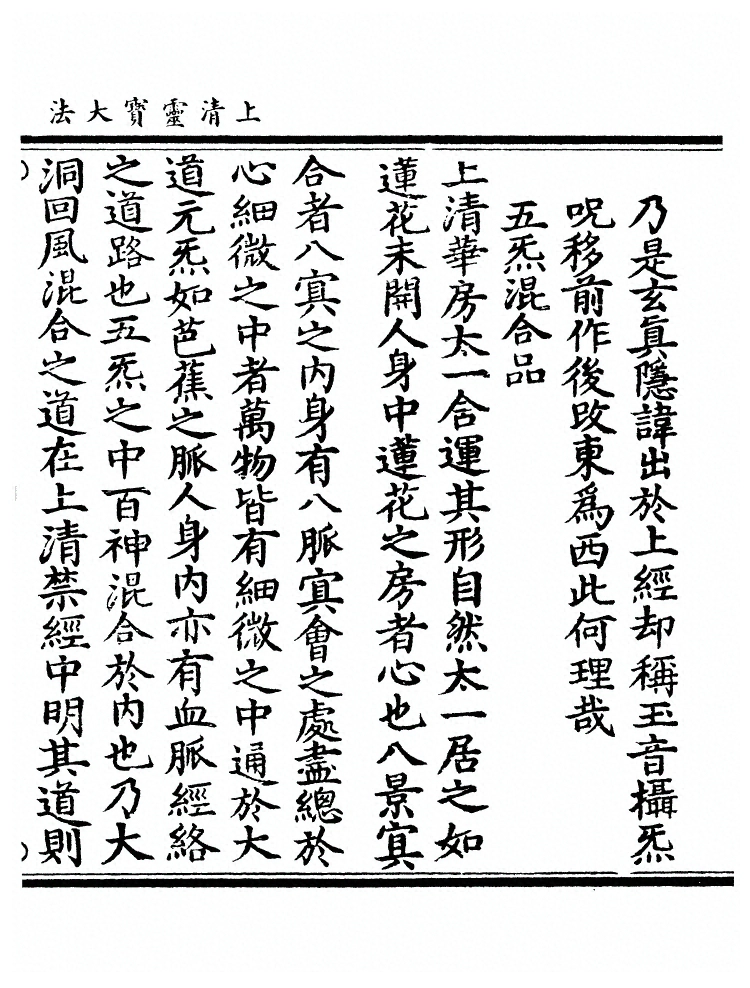 上清靈寳大法
乃是玄眞隱諱出於上經却稱玉音攝炁
呪移前作後改東爲西此何理哉
五炁混合品
上清華房太一含運其形自然太一居之如
蓮花未開人身中蓮花之房者心也八景㝠
合者八㝠之内身有八脈㝠會之處盡總於
心細微之中者萬物皆有細微之中通於大
道元炁如芭蕉之脈人身内亦有血脈經絡
之道路也五炁之中百神混合於内也乃大
洞回風混合之道在上清禁經中明其道則